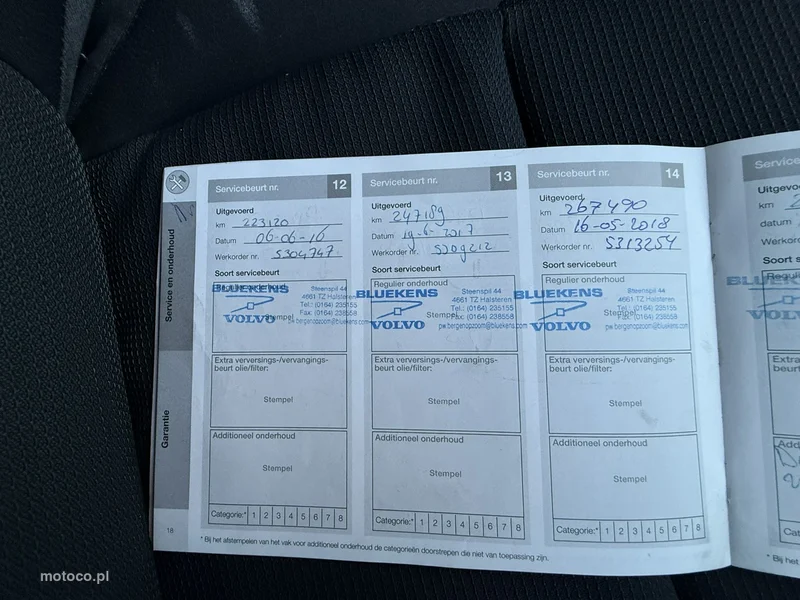 Service en onderhoud
Garantie
Servicebeurt nr. 12
Uitgevoerd
km 223120
Datum 06-06-16
Werkorder nr. S304747
Soort servicebeurt
Regulier onderhoud
Stempel
BLUEKENS
VOLVO
Steenspil 44
4661 TZ Halsteren
Tel.: (0164) 235155
Fax: (0164) 238558
pw.bergenopzoom@bluekens.com
Extra verversings-/vervangings-
beurt olie/filter:
Stempel
Additioneel onderhoud
Stempel
Categorie:* 1 2 3 4 5 6 7 8
Servicebeurt nr. 13
Uitgevoerd
km 247189
Datum 19-6-2017
Werkorder nr. S309212
Soort servicebeurt
Regulier onderhoud
Stempel
BLUEKENS
VOLVO
Steenspil 44
4661 TZ Halsteren
Tel.: (0164) 235155
Fax: (0164) 238558
pw.bergenopzoom@bluekens.com
Extra verversings-/vervangings-
beurt olie/filter:
Stempel
Additioneel onderhoud
Stempel
Categorie:* 1 2 3 4 5 6 7 8
Servicebeurt nr. 14
Uitgevoerd
km 267490
Datum 16-05-2018
Werkorder nr. S313254
Soort servicebeurt
Regulier onderhoud
Stempel
BLUEKENS
VOLVO
Steenspil 44
4661 TZ Halsteren
Tel.: (0164) 235155
Fax: (0164) 238558
pw.bergenopzoom@bluekens.com
Extra verversings-/vervangings-
beurt olie/filter:
Stempel
Additioneel onderhoud
Stempel
Categorie:* 1 2 3 4 5 6 7 8
18
* Bij het afstempelen van het vak voor additioneel onderhoud de categorieën doorstrepen die niet van toepassing zijn.
Service
Uitgevoe
km
datum
Werkord
Soort s
Regulie
BLUEKENS
VO
Extra
beurt
Add
Cat
* Bij het
motoco.pl